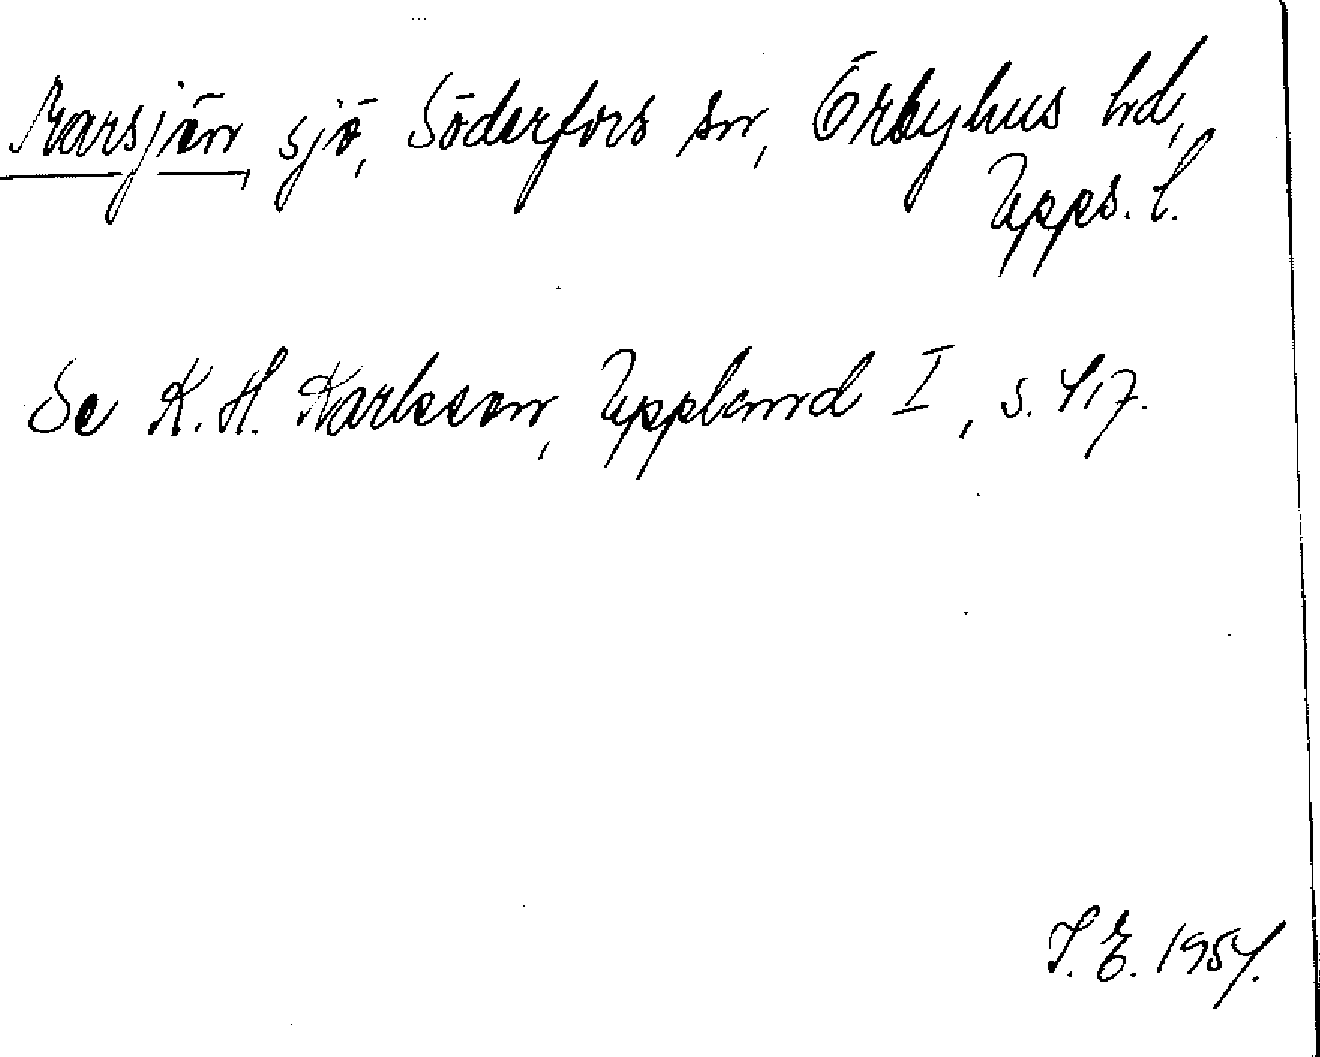 Marsjön, sjö, Söderfors sn, Örbyhus hd,
Upps. l.
Se K. H. Karlsson, Uppland I, s. 417.
I. E. 1954.